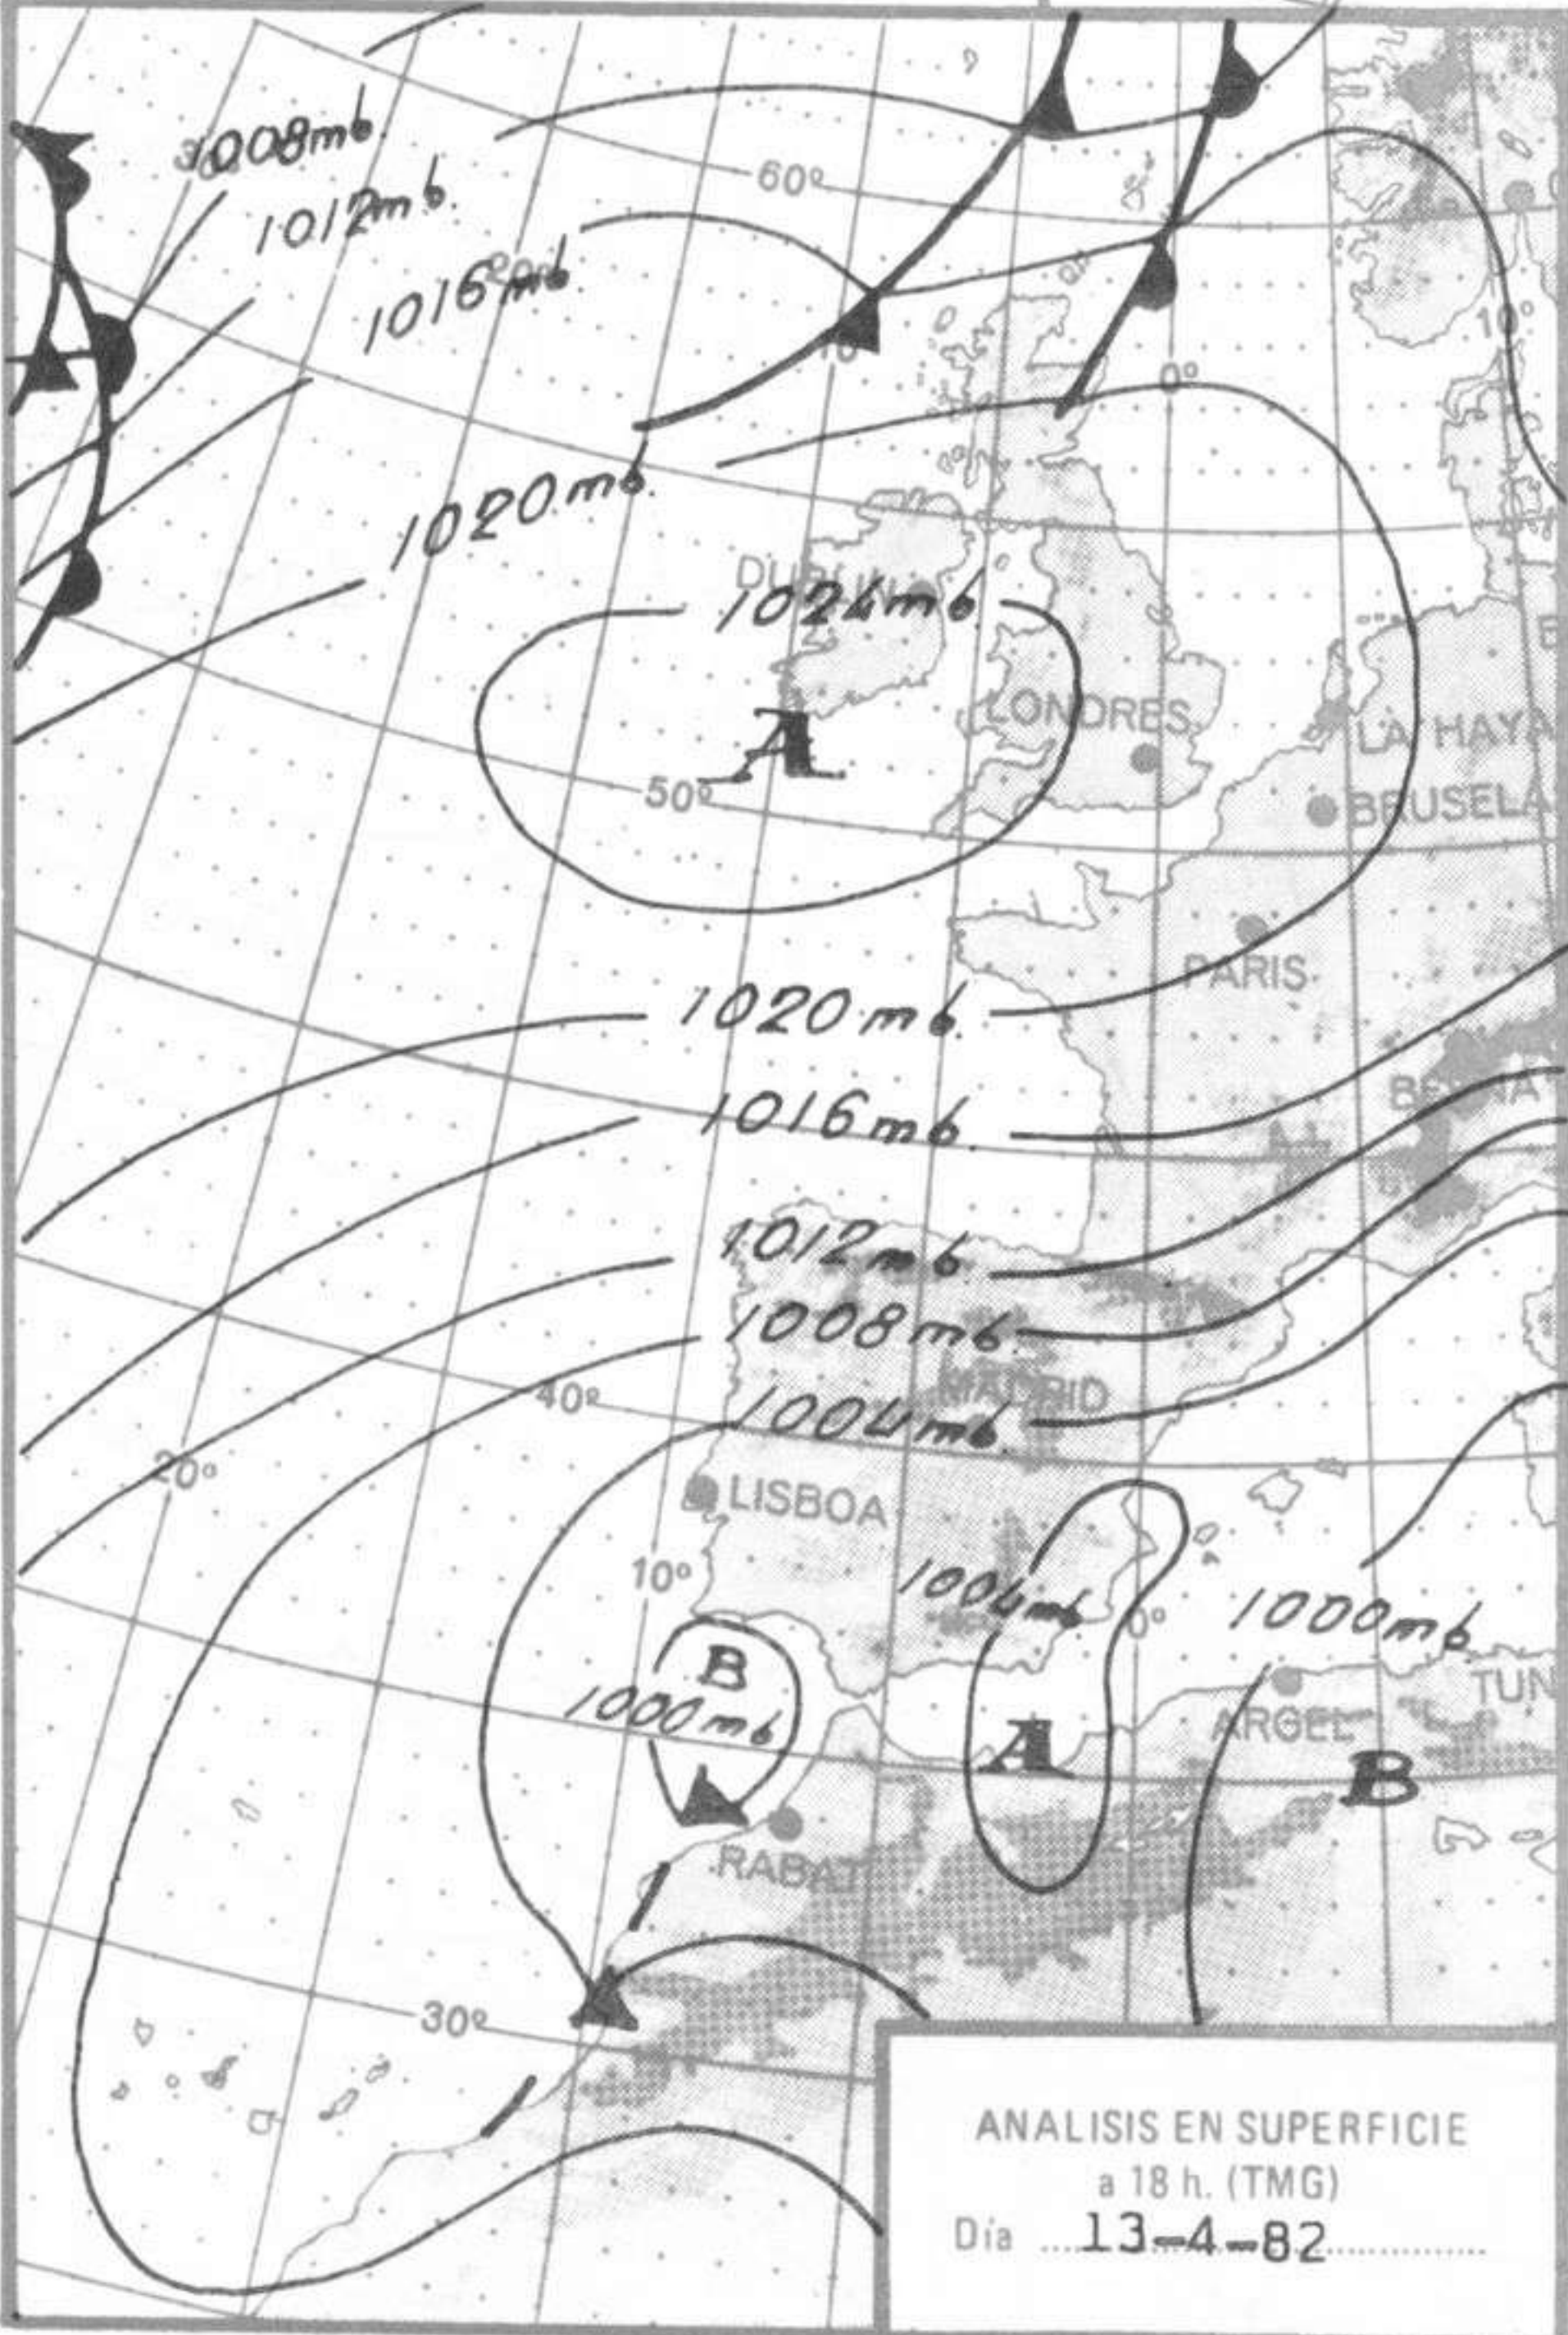 1008mb.
1012mb.
60º
1016mb.
10º
0º
1020mb.
DUBLIN
1024mb.
LONDRES
LA HAYA
50º
BRUSELA
PARIS
1020mb.
1016mb.
1012mb.
1008mb.
MADRID
40º
1004mb.
20º
LISBOA
10º
1004mb
0º
1000mb
B
1000mb
TUN
ARGEL
A
B
RABAT
30º
A
ANALISIS EN SUPERFICIE
a 18 h. (TMG)
Día 13-4-82